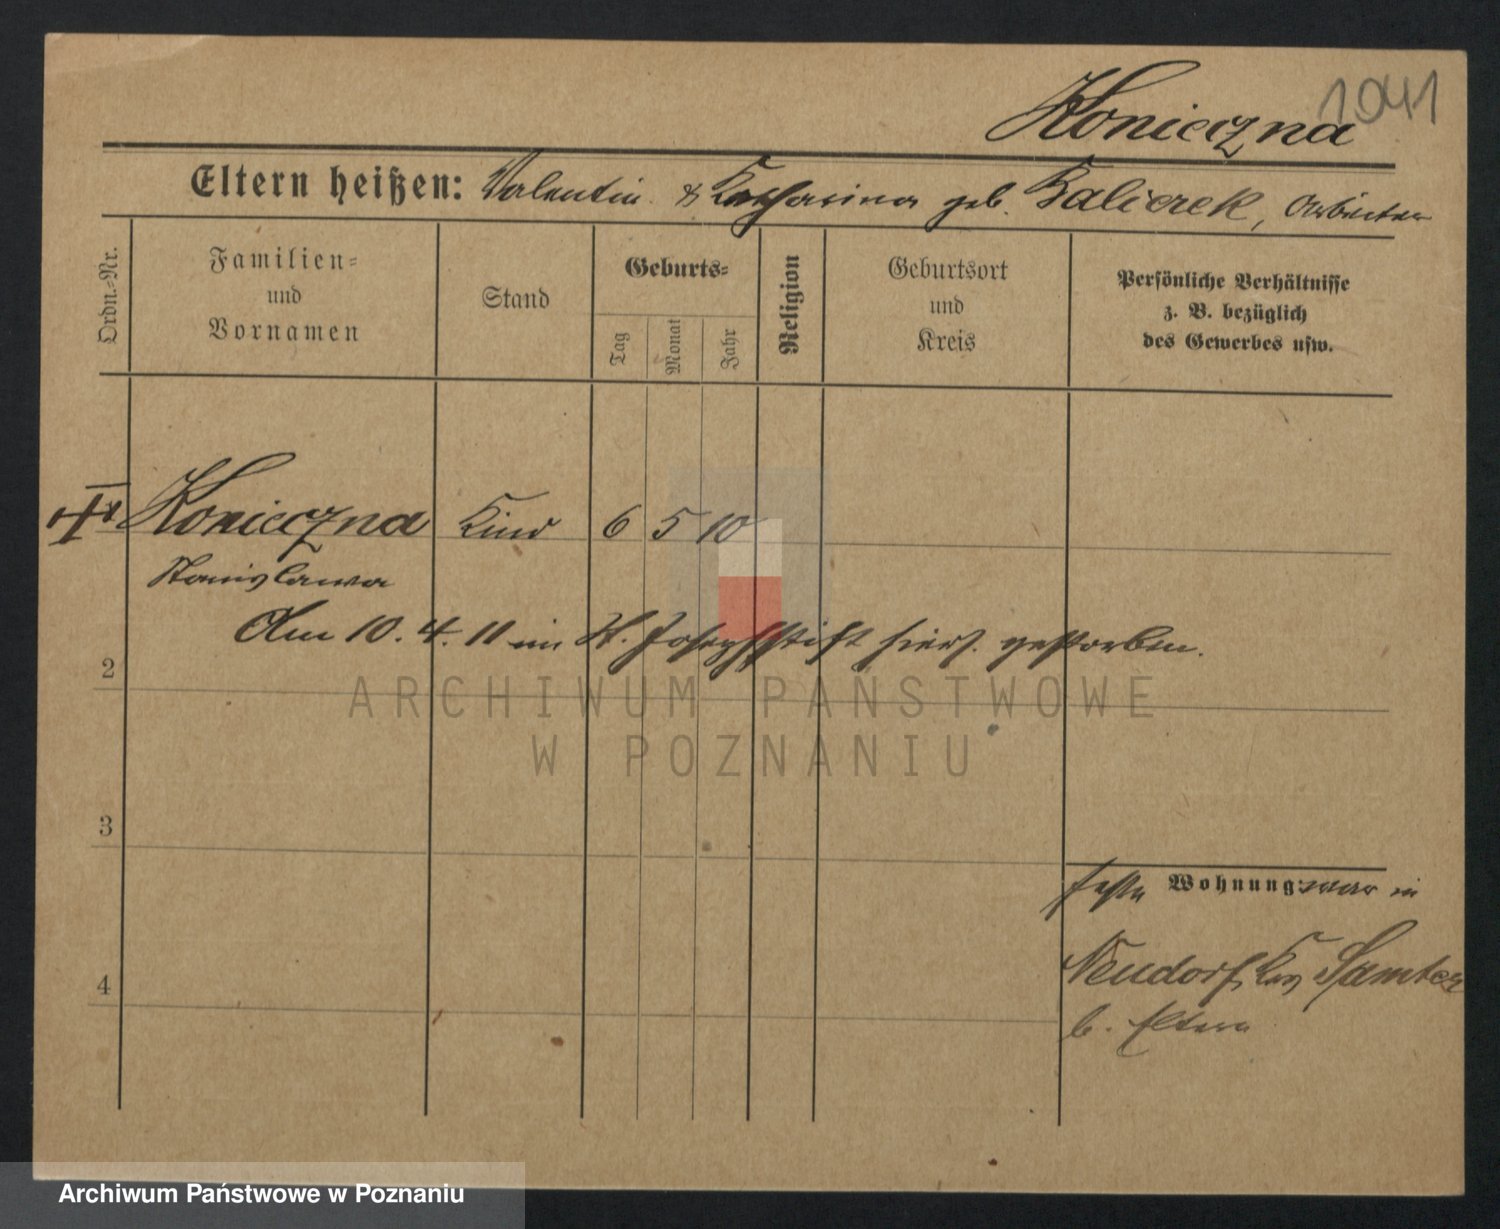 1041
Konieczna
Eltern heißen: Valentin & Katharina geb. Balicrek, Arbeiter
Ordn.-Nr.
Familien-
und
Vornamen
Stand
Geburts-
Tag
Monat
Jahr
Religion
Geburtsort
und
Kreis
Persönliche Verhältnisse
z. B. bezüglich
des Gewerbes usw.
Konieczna Kind 6 5 10
Stanislawa
Am 10. 4. 11 im St. Josephstift hiers. gestorben.
2
ARCHIWUM PAŃSTWOWE
W POZNANIU
3
feste Wohnung: war in
4
Neudorf, Krs Samter
b. Eltern
Archiwum Państwowe w Poznaniu